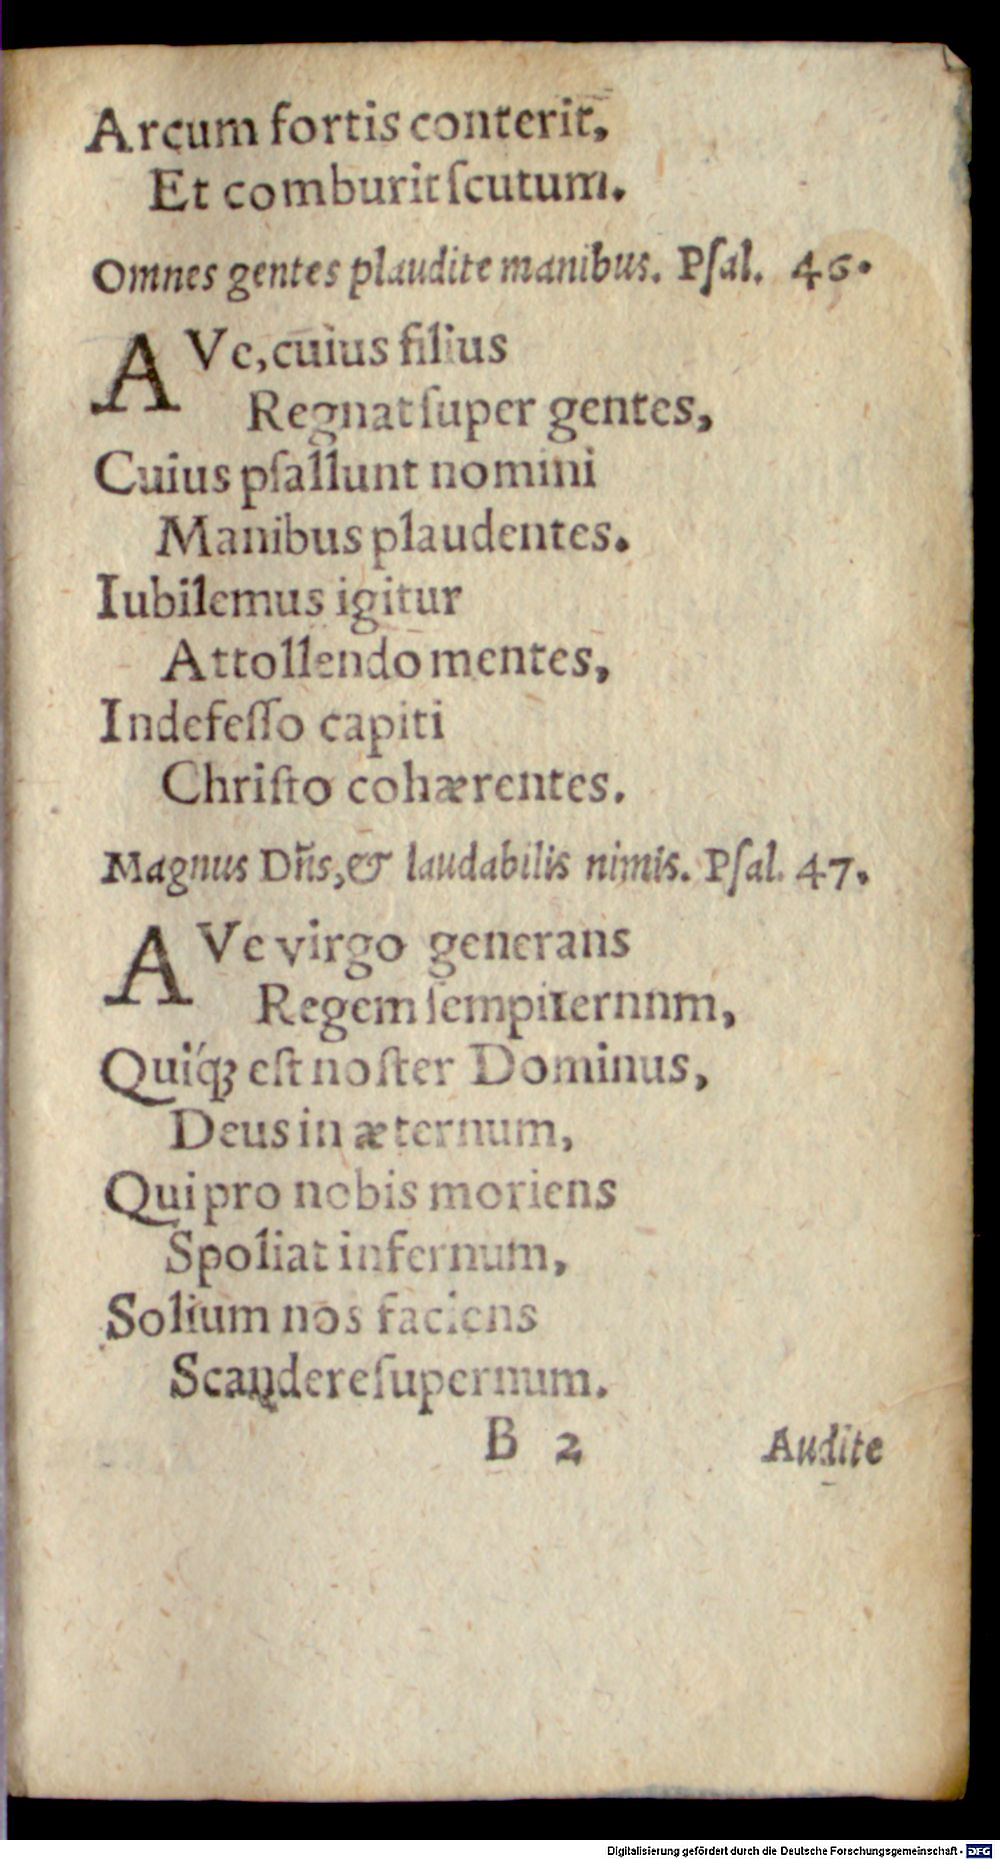 Arcum fortis conterit,
Et comburit ſcutum.
Omnes gentes plaudite manibus. Pſal. 46.
AVe, cuius filius
Regnat ſuper gentes,
Cuius pſallunt nomini
Manibus plaudentes.
Iubilemus igitur
Attollendo mentes,
Indefeſſo capiti
Chriſto cohærentes.
Magnus Dn̄s, & laudabilis nimis. Pſal. 47.
AVe virgo generans
Regem ſempiternnm,
Quiq́ꝫ eſt noſter Dominus,
Deus in æternum,
Qui pro nobis moriens
Spoliat infernum,
Solium nos faciens
Scandere ſupernum.
B 2 Audite
Digitalisierung gefördert durch die Deutsche Forschungsgemeinschaft - DFG